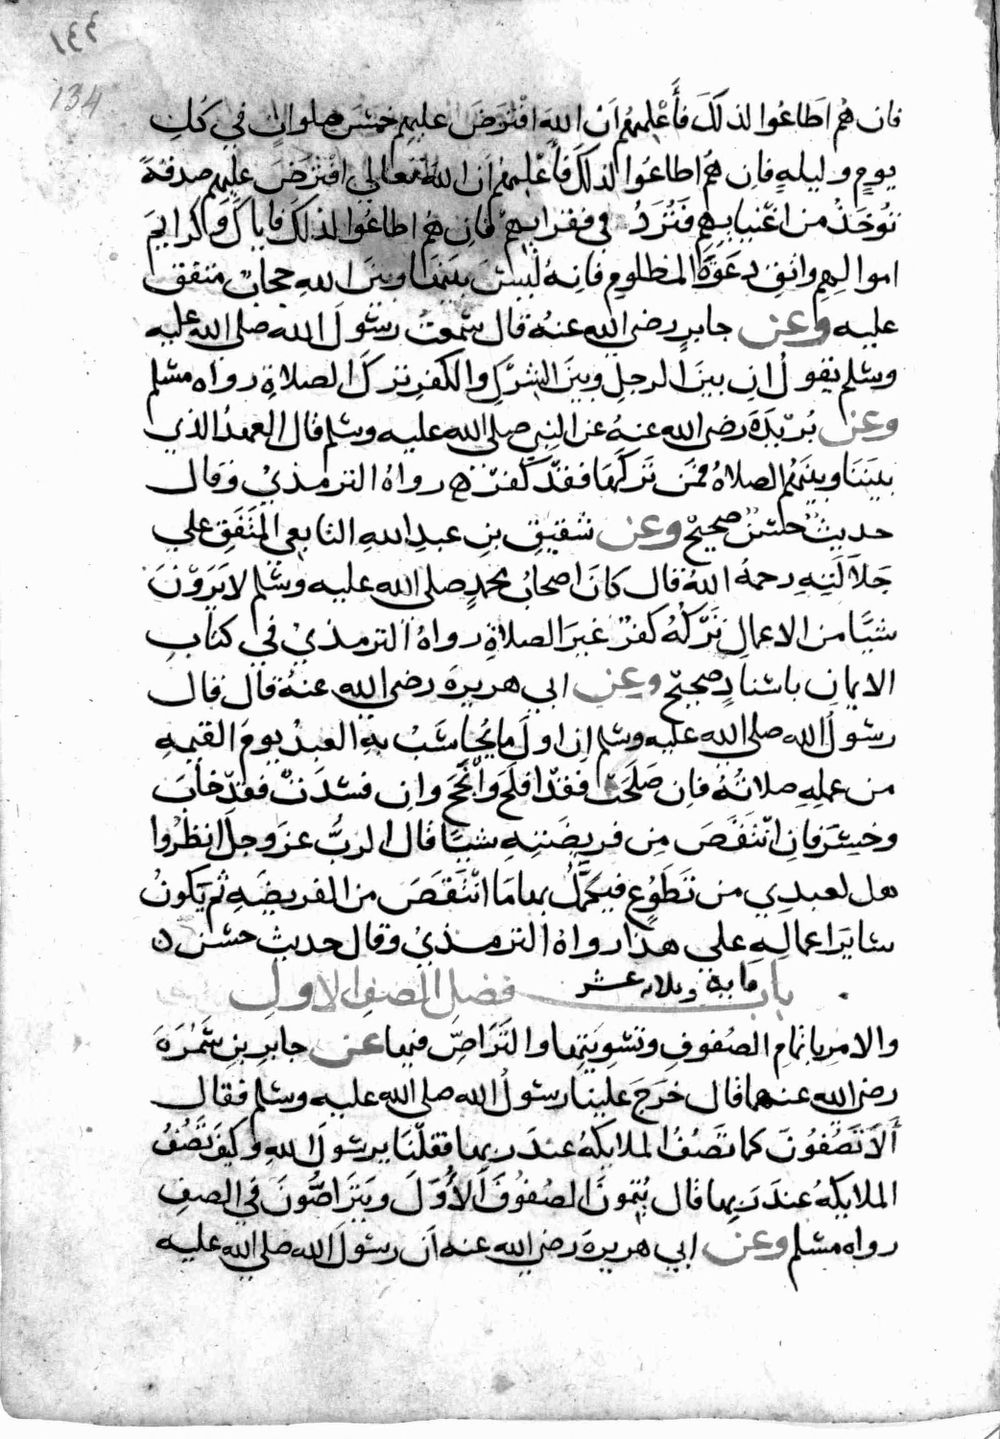 ١٤٤
134
فان هم اطاعوا لذلك فأعلمهم أن الله افترض عليهم خمس صلوات في كل
يوم وليلة فان هم اطاعوا لذلك فأعلمهم أن الله تعالي افترض عليهم صدقة
تؤخذ من اغنيايهم فترد في فقرايهم فان هم اطاعوا لذلك فاياك وكرايم
اموالهم واتق دعوة المظلوم فانه ليس بينها وبين الله حجاب متفق
عليه وعن جابر رضي الله عنه قال سمعت رسول الله صلي الله عليه
وسلم يقول ان بين الرجل وبين الشرك والكفر ترك الصلاة رواه مسلم
وعن بريدة رضي الله عنه عن النبي صلي الله عليه وسلم قال العهد الذي
بيننا وبينهم الصلاة فمن تركها فقد كفر رواه الترمذي وقال
حديث حسن صحيح وعن شقيق بن عبد الله التابعي المتفق علي
جلالته رحمه الله قال كان اصحاب محمد صلي الله عليه وسلم لا يرون
شيا من الاعمال تركه كفر غير الصلاة رواه الترمذي في كتاب
الايمان باسناد صحيح وعن ابي هريرة رضي الله عنه قال قال
رسول الله صلي الله عليه وسلم ان اول ما يحاسب به العبد يوم القيمه
من عمله صلاته فان صلحت فقد افلح وأنجح وان فسدت فقد خاب
وخسر فان انتقص من فريضته شيا قال الرب عز وجل انظروا
هل لعبدي من تطوع فيكمل بها ما انتقص من الفريضه ثم يكون
ساير اعماله علي هذا رواه الترمذي وقال حديث حسن
باب ماية وثلاثه عشر فضل الصف الاول
والامر باتمام الصفوف وتسويتها والتراص فيها عن جابر بن سمرة
رضي الله عنهما قال خرج علينا رسول الله صلي الله عليه وسلم فقال
ألا تصفون كما تصف الملايكه عند ربها فقلنا يرسول الله وكيف تصف
الملايكه عند ربها قال يتمون الصفوف الأول ويتراصون في الصف
رواه مسلم وعن ابي هريرة رضي الله عنه ان رسول الله صلي الله عليه